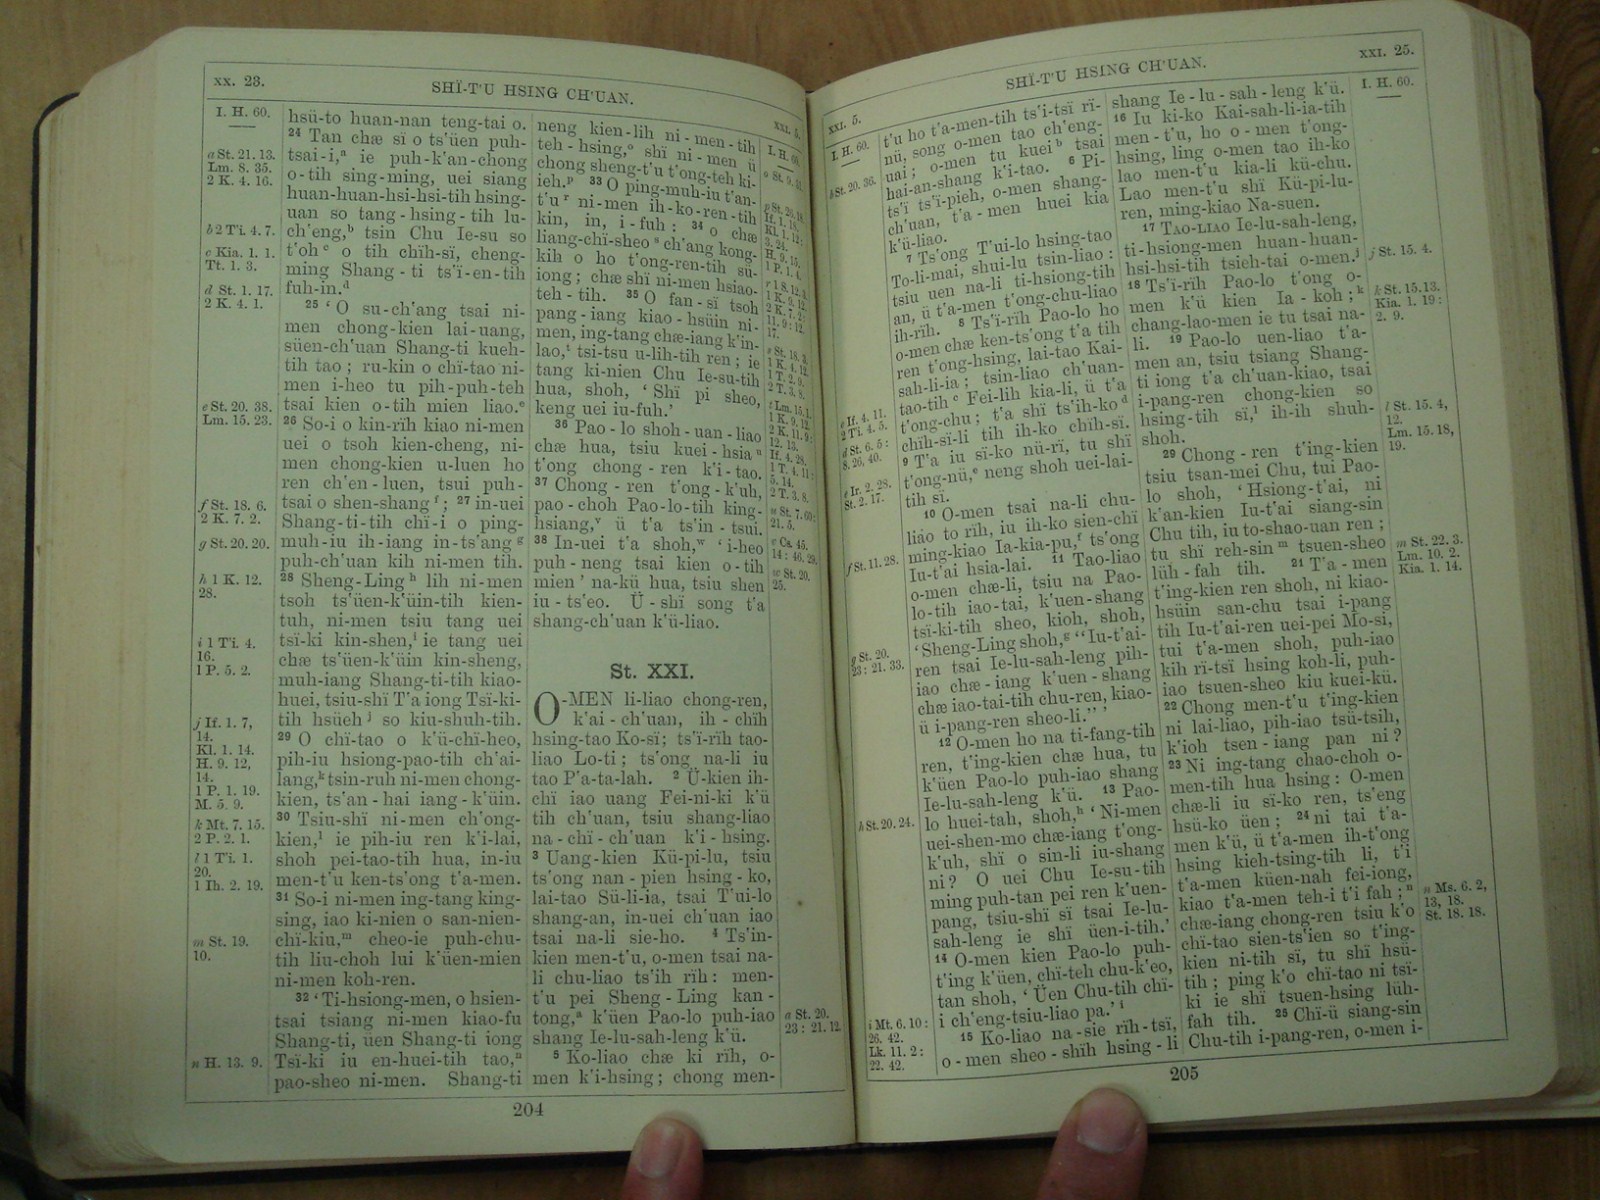 xx. 23.
SHÏ-T'U HSING CH'UAN.
xxi. 5.
I. H. 60.
a St. 21. 13.
Lm. 8. 35.
2 K. 4. 16.
b 2 T'i. 4. 7.
c Kia. 1. 1.
Tt. 1. 3.
d St. 1. 17.
2 K. 4. 1.
e St. 20. 38.
Lm. 15. 23.
f St. 18. 6.
2 K. 7. 2.
g St. 20. 20.
h 1 K. 12.
28.
i 1 T'i. 4.
16.
1 P. 5. 2.
j If. 1. 7,
14.
Kl. 1. 14.
H. 9. 12,
14.
1 P. 1. 19.
M. 5. 9.
k Mt. 7. 15.
2 P. 2. 1.
l 1 T'i. 1.
20.
1 Ih. 2. 19.
m St. 19.
10.
n H. 13. 9.
hsü-to huan-nan teng-tai o.
24 Tan chæ sï o ts'üen puh-
tsai-i,a ie puh-k'an-chong
o-tih sing-ming, uei siang
huan-huan-hsi-hsi-tih hsing-
uan so tang-hsing-tih lu-
ch'eng,b tsin Chu Ie-su so
t'oh c o tih chïh-sï, cheng-
ming Shang-ti ts'ï-en-tih
fuh-in.d
25 ‘O su-ch'ang tsai ni-
men chong-kien lai-uang,
süen-ch'uan Shang-ti kueh-
tih tao; ru-kin o chï-tao ni-
men i-heo tu pih-puh-teh
tsai kien o-tih mien liao.e
26 So-i o kin-rïh kiao ni-men
uei o tsoh kien-cheng, ni-
men chong-kien u-luen ho
ren ch'en-luen, tsui puh-
tsai o shen-shang f; 27 in-uei
Shang-ti-tih chï-i o ping-
muh-iu ih-iang in-ts'ang g
puh-ch'uan kih ni-men tih.
28 Sheng-Ling h lih ni-men
tsoh ts'üen-k'üin-tih kien-
tuh, ni-men tsiu tang uei
tsï-ki kin-shen,i ie tang uei
chæ ts'üen-k'üin kin-sheng,
muh-iang Shang-ti-tih kiao-
huei, tsiu-shï T'a iong Tsï-ki-
tih hsüeh j so kiu-shuh-tih.
29 O chï-tao o k'ü-chï-heo,
pih-iu hsiong-pao-tih ch'ai-
lang,k tsin-ruh ni-men chong-
kien, ts'an-hai iang-k'üin.
30 Tsiu-shï ni-men ch'ong-
kien,l ie pih-iu ren k'i-lai,
shoh pei-tao-tih hua, in-iu
men-t'u ken-ts'ong t'a-men.
31 So-i ni-men ing-tang king-
sing, iao ki-nien o san-nien-
chï-kiu,m cheo-ie puh-chu-
tih liu-choh lui k'üen-mien
ni-men koh-ren.
32 ‘Ti-hsiong-men, o hsien-
tsai tsiang ni-men kiao-fu
Shang-ti, üen Shang-ti iong
Tsï-ki iu en-huei-tih tao,n
pao-sheo ni-men. Shang-ti
neng kien-lih ni-men-tih
teh-hsing,o shï ni-men ü
chong sheng-t'u t'ong-teh ki-
ieh.p 33 O ping-muh-iu t'an-
t'u r ni-men ih-ko-ren-tih
kin, in, i-fuh: 34 o chæ
liang-chï-sheo s ch'ang kong-
kih o ho t'ong-ren-tih sü-
iong; chæ shï ni-men hsiao-
teh-tih. 35 O fan-sï tsoh
pang-iang kiao-hsüin ni-
men, ing-tang chæ-iang k'in-
lao,t tsi-tsu u-lih-tih ren; ie
tang ki-nien Chu Ie-su-tih
hua, shoh, ‘Shï pi sheo,
keng uei iu-fuh.’
36 Pao-lo shoh-uan-liao
chæ hua, tsiu kuei-hsia u
t'ong chong-ren k'i-tao.
37 Chong-ren t'ong-k'uh,
pao-choh Pao-lo-tih king-
hsiang,v ü t'a ts'in-tsui.
38 In-uei t'a shoh,w ‘i-heo
puh-neng tsai kien o-tih
mien’ na-kü hua, tsiu shen
iu-ts'eo. Ü-shï song t'a
shang-ch'uan k'ü-liao.
St. XXI.
O-MEN li-liao chong-ren,
k'ai-ch'uan, ih-chïh
hsing-tao Ko-sï; ts'ï-rïh tao-
liao Lo-ti; ts'ong na-li iu
tao P'a-ta-lah. 2 Ü-kien ih-
chï iao uang Fei-ni-ki k'ü
tih ch'uan, tsiu shang-liao
na-chï-ch'uan k'i-hsing.
3 Uang-kien Kü-pi-lu, tsiu
ts'ong nan-pien hsing-ko,
lai-tao Sü-li-ia, tsai T'ui-lo
shang-an, in-uei ch'uan iao
tsai na-li sie-ho. 4 Ts'in-
kien men-t'u, o-men tsai na-
li chu-liao ts'ih rïh: men-
t'u pei Sheng-Ling kan-
tong,a k'üen Pao-lo puh-iao
shang Ie-lu-sah-leng k'ü.
5 Ko-liao chæ ki rïh, o-
men k'i-hsing; chong men-
w St. 20.
25.
a St. 20.
23: 21. 12.
204
xxi. 5.
SHÏ-T'U HSING CH'UAN.
xxi. 25.
I. H. 60.
b St. 20. 36.
c If. 4. 11.
2 Ti. 4. 5.
d St. 6. 5:
8. 26, 40.
e Ir. 2. 28.
St. 2. 17.
f St. 11. 28.
g St. 20.
23: 21. 33.
h St. 20. 24.
i Mt. 6. 10:
26. 42.
Lk. 11. 2:
22. 42.
t'u ho t'a-men-tih ts'i-tsï rï-
nü, song o-men tao ch'eng-
uai; o-men tu kuei b tsai
hai-an-shang k'i-tao. 6 Pi-
ts'ï ts'ï-pieh, o-men shang-
ch'uan, t'a-men huei kia
k'ü-liao.
7 Ts'ong T'ui-lo hsing-tao
To-li-mai, shui-lu tsin-liao:
tsiu uen na-li ti-hsiong-tih
an, ü t'a-men t'ong-chu-liao
ih-rïh. 8 Ts'ï-rïh Pao-lo ho
o-men chæ ken-ts'ong t'a tih
ren t'ong-hsing, lai-tao Kai-
sah-li-ia; tsin-liao ch'uan-
tao-tih c Fei-lih kia-li, ü t'a
t'ong-chu; t'a shï ts'ih-ko d
chïh-sï-li tih ih-ko chïh-sï.
9 T'a iu sï-ko nü-rï, tu shï
t'ong-nü,e neng shoh uei-lai-
tih sï.
10 O-men tsai na-li chu-
liao to rïh, iu ih-ko sien-chï
ming-kiao Ia-kia-pu,f ts'ong
Iu-t'ai hsia-lai. 11 Tao-liao
o-men chæ-li, tsiu na Pao-
lo-tih iao-tai, k'uen-shang
tsï-ki-tih sheo, kioh, shoh,
‘Sheng-Ling shoh,g “Iu-t'ai-
ren tsai Ie-lu-sah-leng pih-
iao chæ-iang k'uen-shang
chæ iao-tai-tih chu-ren, kiao-
ü i-pang-ren sheo-li.” ’
12 O-men ho na ti-fang-tih
ren, t'ing-kien chæ hua, tu
k'üen Pao-lo puh-iao shang
Ie-lu-sah-leng k'ü. 13 Pao-
lo huei-tah, shoh,h ‘Ni-men
uei-shen-mo chæ-iang t'ong-
k'uh, shï o sin-li iu-shang
ni? O uei Chu Ie-su-tih
ming puh-tan pei ren k'uen-
pang, tsiu-shï sï tsai Ie-lu-
sah-leng ie shï üen-i-tih.’
14 O-men kien Pao-lo puh-
t'ing k'üen, chï-teh chu-k'eo,
tan shoh, ‘Üen Chu-tih chï-
i ch'eng-tsiu-liao pa.’ i
15 Ko-liao na-sie rïh-tsï,
o-men sheo-shïh hsing-li
shang Ie-lu-sah-leng k'ü.
16 Iu ki-ko Kai-sah-li-ia-tih
men-t'u, ho o-men t'ong-
hsing, ling o-men tao ih-ko
lao men-t'u kia-li kü-chu.
Lao men-t'u shï Kü-pi-lu-
ren, ming-kiao Na-suen.
17 TAO-LIAO Ie-lu-sah-leng,
ti-hsiong-men huan-huan-
hsi-hsi-tih tsieh-tai o-men.j
18 Ts'ï-rïh Pao-lo t'ong o-
men k'ü kien Ia-koh;k
chang-lao-men ie tu tsai na-
li. 19 Pao-lo uen-liao t'a-
men an, tsiu tsiang Shang-
ti iong t'a ch'uan-kiao, tsai
i-pang-ren chong-kien so
hsing-tih sï,l ih-ih shuh-
shoh.
29 Chong-ren t'ing-kien
tsiu tsan-mei Chu, tui Pao-
lo shoh, ‘Hsiong-t'ai, ni
k'an-kien Iu-t'ai siang-sin
Chu tih, iu to-shao-uan ren;
tu shï reh-sin m tsuen-sheo
lüh-fah tih. 21 T'a-men
t'ing-kien ren shoh, ni kiao-
hsüin san-chu tsai i-pang
tih Iu-t'ai-ren uei-pei Mo-si,
tui t'a-men shoh, puh-iao
kih rï-tsï hsing koh-li, puh-
iao tsuen-sheo kiu kuei-kü.
22 Chong men-t'u t'ing-kien
ni lai-liao, pih-iao tsü-tsih,
k'ioh tsen-iang pan ni?
23 Ni ing-tang chao-choh o-
men-tih hua hsing: O-men
chæ-li iu sï-ko ren, ts'eng
hsü-ko üen; 24 ni tai t'a-
men k'ü, ü t'a-men ih-t'ong
hsing kieh-tsing-tih li, t'i
t'a-men küen-nah fei-iong,
kiao t'a-men teh-i t'i fah;n
chæ-iang chong-ren tsiu k'o
chï-tao sien-ts'ien so t'ing-
kien ni-tih sï, tu shï hsü-
tih; ping k'o chï-tao ni tsï-
ki ie shï tsuen-hsing lüh-
fah tih. 25 Chï-ü siang-sin
Chu-tih i-pang-ren, o-men i-
I. H. 60.
j St. 15. 4.
k St. 15.13.
Kia. 1. 19:
2. 9.
l St. 15. 4,
12.
Lm. 15. 18,
19.
m St. 22. 3.
Lm. 10. 2.
Kia. 1. 14.
n Ms. 6. 2,
13, 18.
St. 18. 18.
205